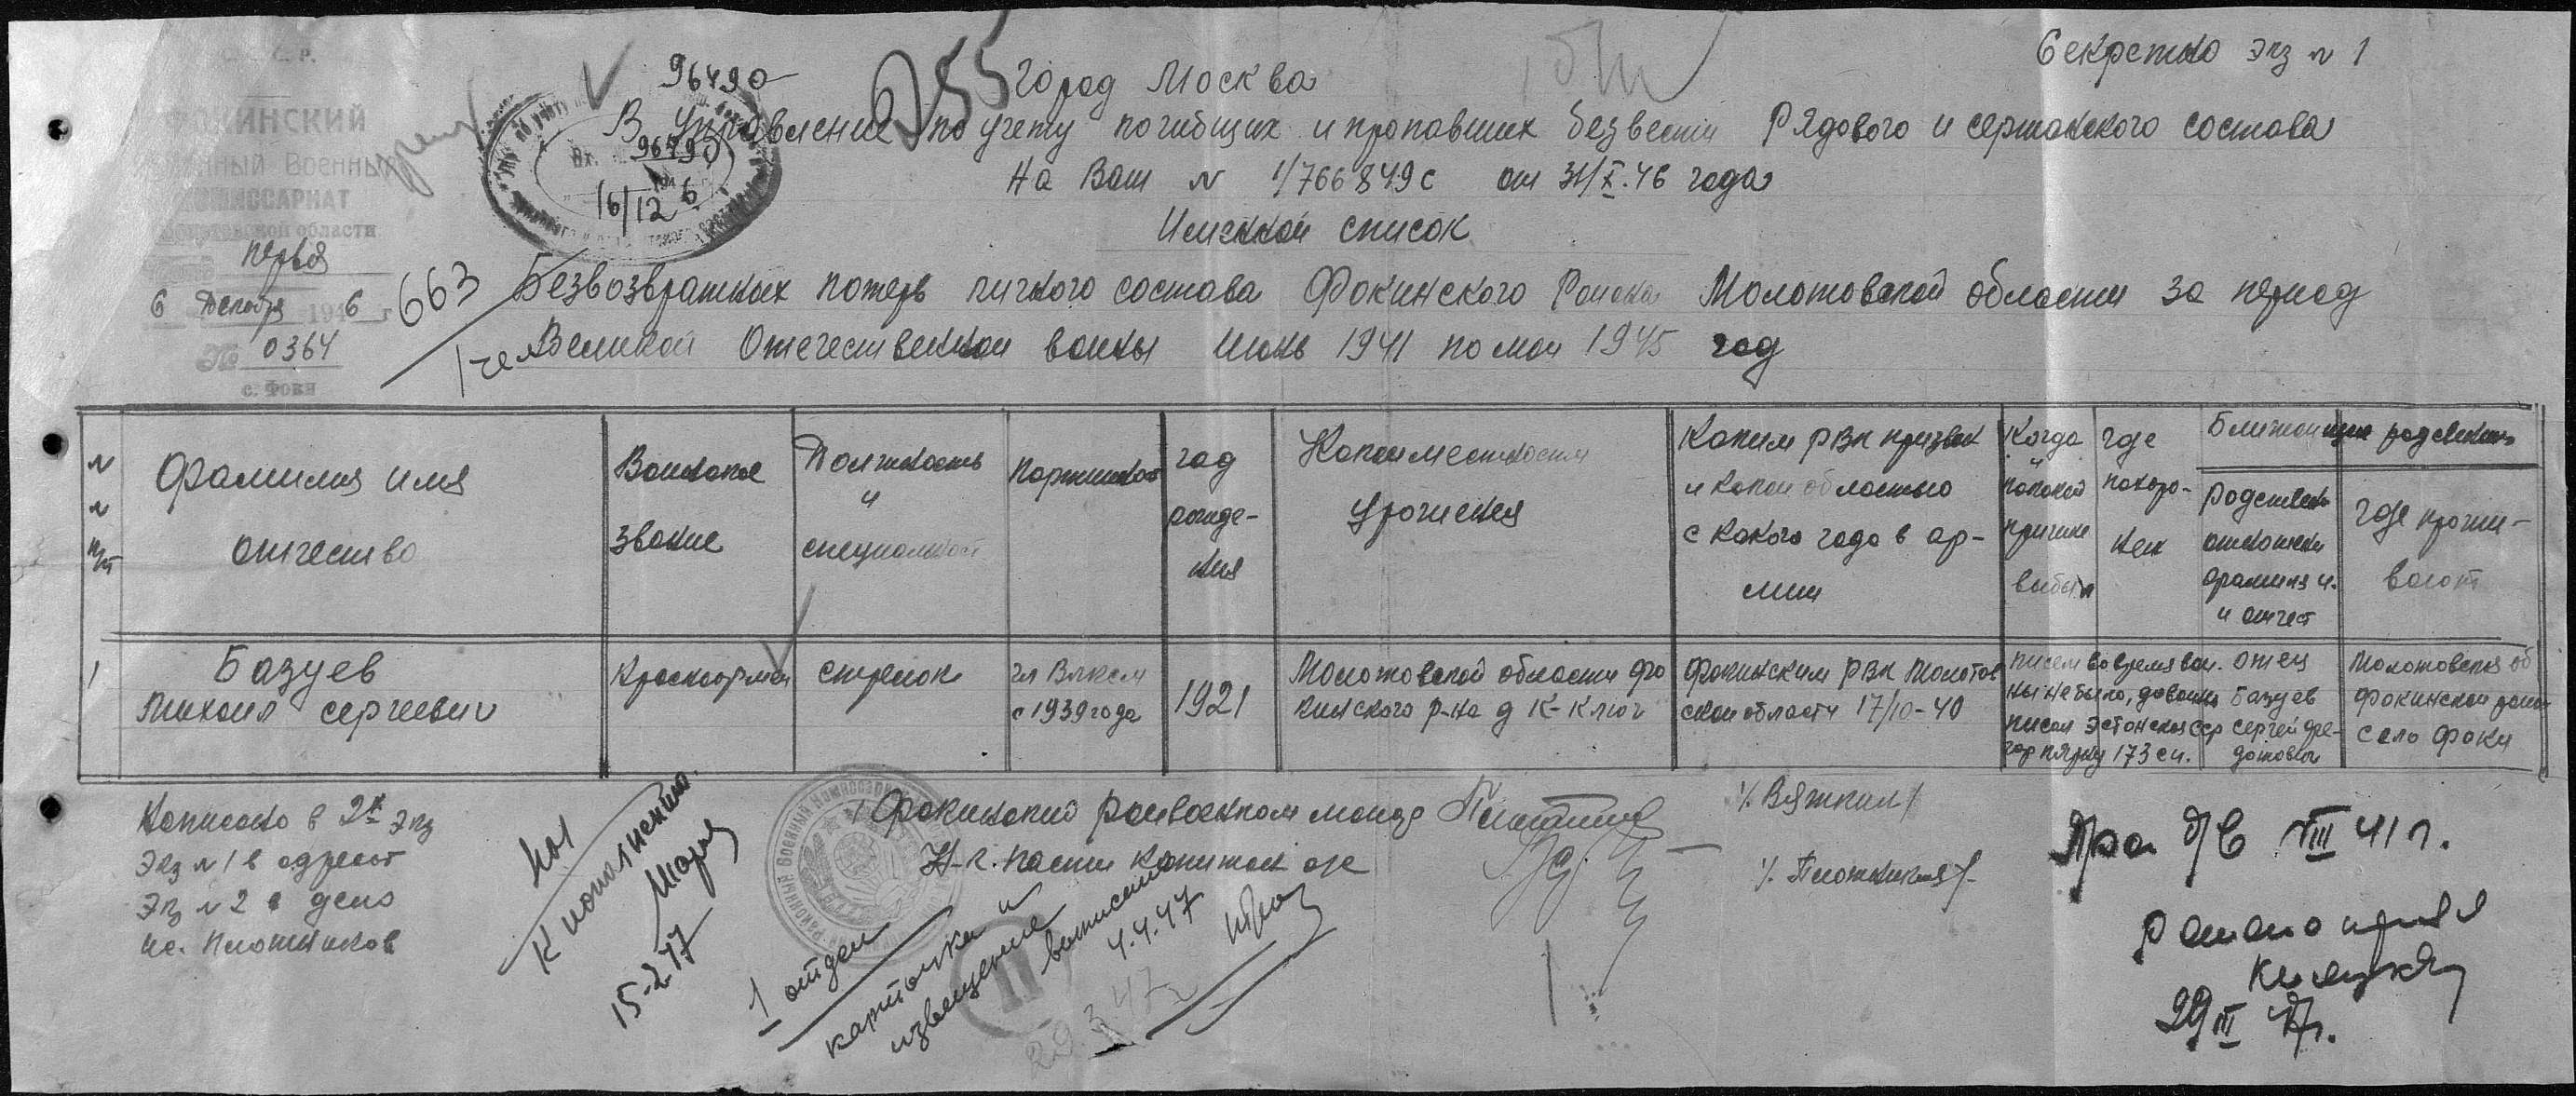 Секретно экз № 1
С. С. С. Р.
ФОКИНСКИЙ
Районный Военный
КОМИССАРИАТ
Молотовской области
первая
6 Декабря 1946 г
№ 0364
с. Фоки
96490
Вх. 96490
16/12 6
663
1 чел
город Москва
В Управление по учету погибших и пропавших безвести Рядового и сержанского состава
На Ваш № 1/766849с от 31/X.46 года
Именной список
Безвозвратных потерь личного состава Фокинского Района Молотовской области за период
Великой Отечественной войны июнь 1941 по май 1945 год
№ № п/п
Фамилия имя отчество
Воинское звание
Должность и специальность
партийность
год рождения
Какой местности уроженец
Каким РВК призван и какой областью с какого года в армии
Когда и покакой причине выбыл
где похоронен
Ближайшие родственники
родствен отношения фамилия и. и отчест
где проживают
1
Базуев Михаил сергеевич
Красноармеец
стрелок
чл Влксм с 1939 года
1921
Молотовской области Фокинского р-на д К-Ключ
Фокинским РВК Молотовской области 17/10-40
писем во время войны не было, до войны писал Эстонская сср гор пярну 173 сп.
отец Базуев Сергей Федотович
Молотовская об Фокинской район село Фоки
Написано в 2х экз
Экз № 1 в адресат
Экз № 2 в дело
ис. Плотников
Фокинский райвоенком майор
/Вяткин/
Н-к. части капитан
/Плотников/
Нач
К исполнению.
15.2.47
1 отдел
карточка и
извещение
выписаны
4.4.47
II
29.3.47
Пр б/в VIII 41 г.
29 III 47г.